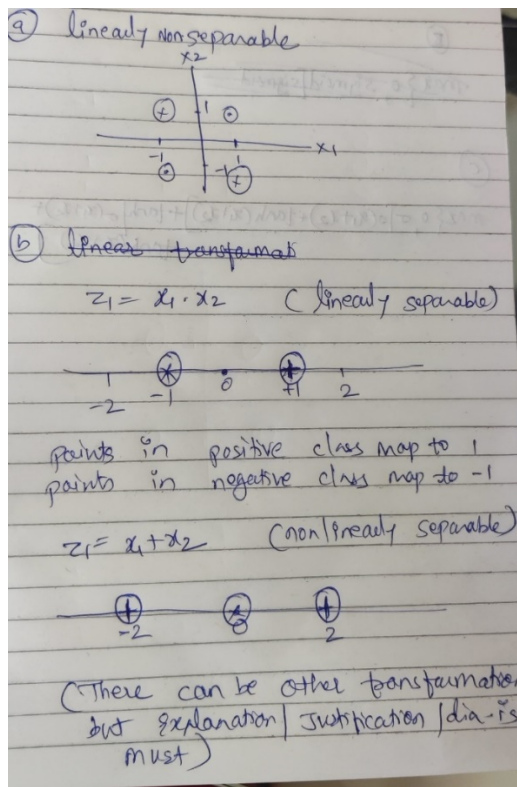 (a) linearly Nonseparable
x2
+ 1
-1 1 x1
-1 +
(b) linear transformat
z1 = x1 . x2 (linearly separable)
-2 -1 0 +1 2
points in positive class map to 1
points in negative class map to -1
z1 = x1 + x2 (nonlinearly separable)
-2 0 2
(There can be other transformation
but explanation / Justification / dia- is
must)